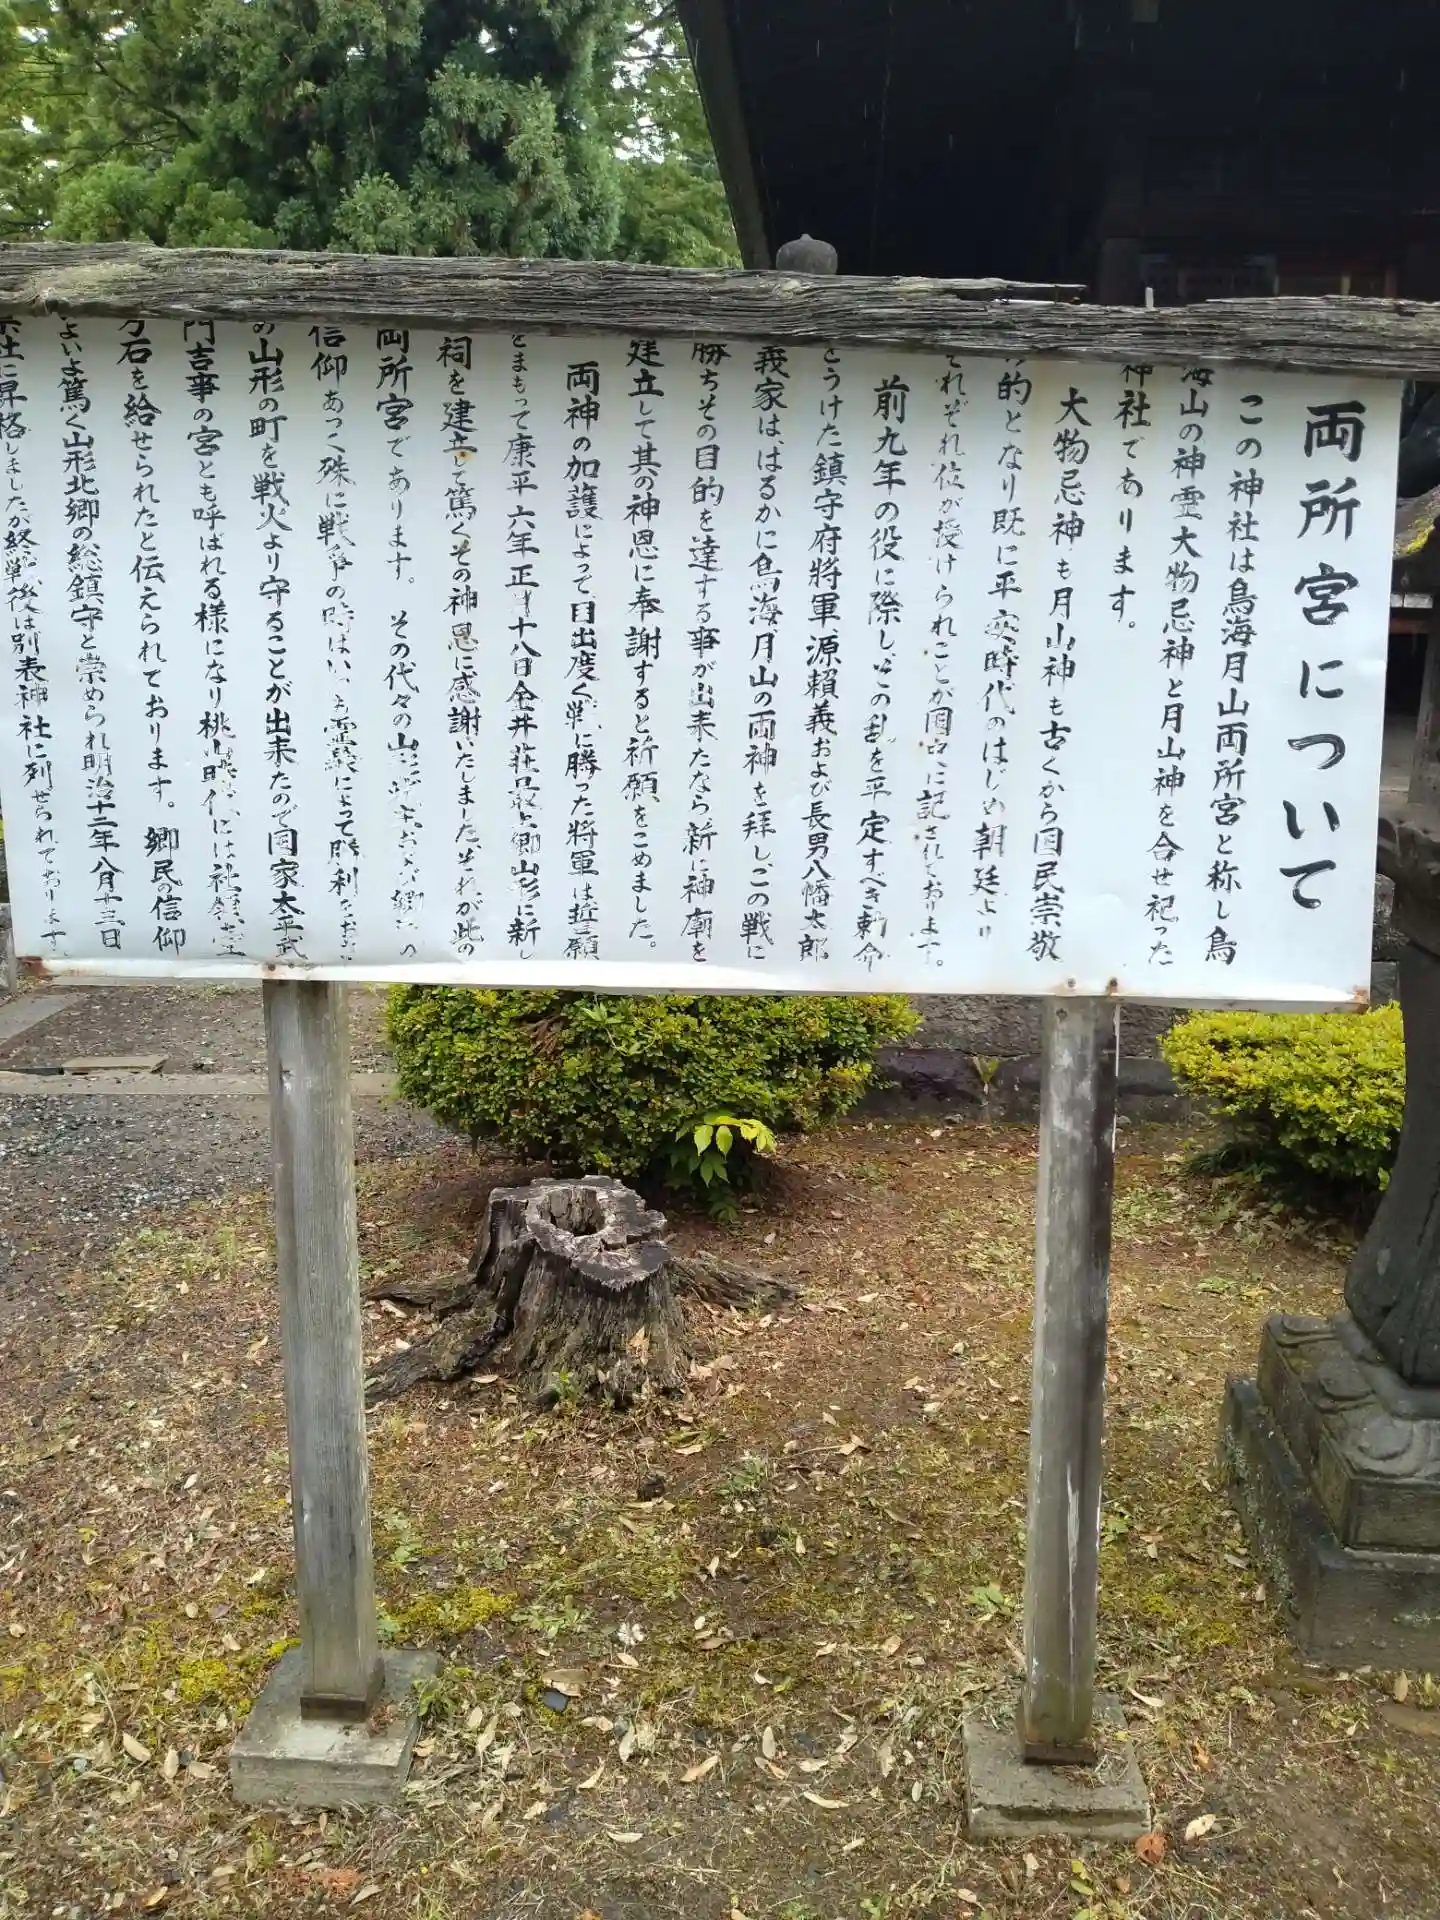 両所宮について
この神社は鳥海月山両所宮と称し鳥
海山の神霊大物忌神と月山神を合せ祀った
神社であります。
大物忌神も月山神も古くから国民崇敬
的となり既に平安時代のはじめ朝廷より
それぞれ位が授けられことが国史に記されております。
前九年の役に際しこの乱を平定すべき勅命
をうけた鎮守府将軍源頼義および長男八幡太郎
義家は、はるかに鳥海月山の両神を拝し、この戦に
勝ちその目的を達する事が出来たなら、新に神廟を
建立して其の神恩に奉謝すると祈願をこめました。
両神の加護によって、目出度く戦に勝った将軍は誓願
をまもって康平六年正月十八日金井荘最上郷山形に新し
祠を建立して篤くその神恩に感謝いたしました、それが此の
両所宮であります。その代々の山形城主および郷民の
信仰あつく殊に戦争の時はいつも霊験によって勝利を
の山形の町を戦火より守ることが出来たので国家太平武
門吉事の宮とも呼ばれる様になり桃山時代には社領壹
万石を給せられたと伝えられております。郷民の信仰
よいよ篤く山形北郷の総鎮守と崇められ明治十二年八月十三日
県社に昇格しましたが終戦後は別表神社に列せられております。